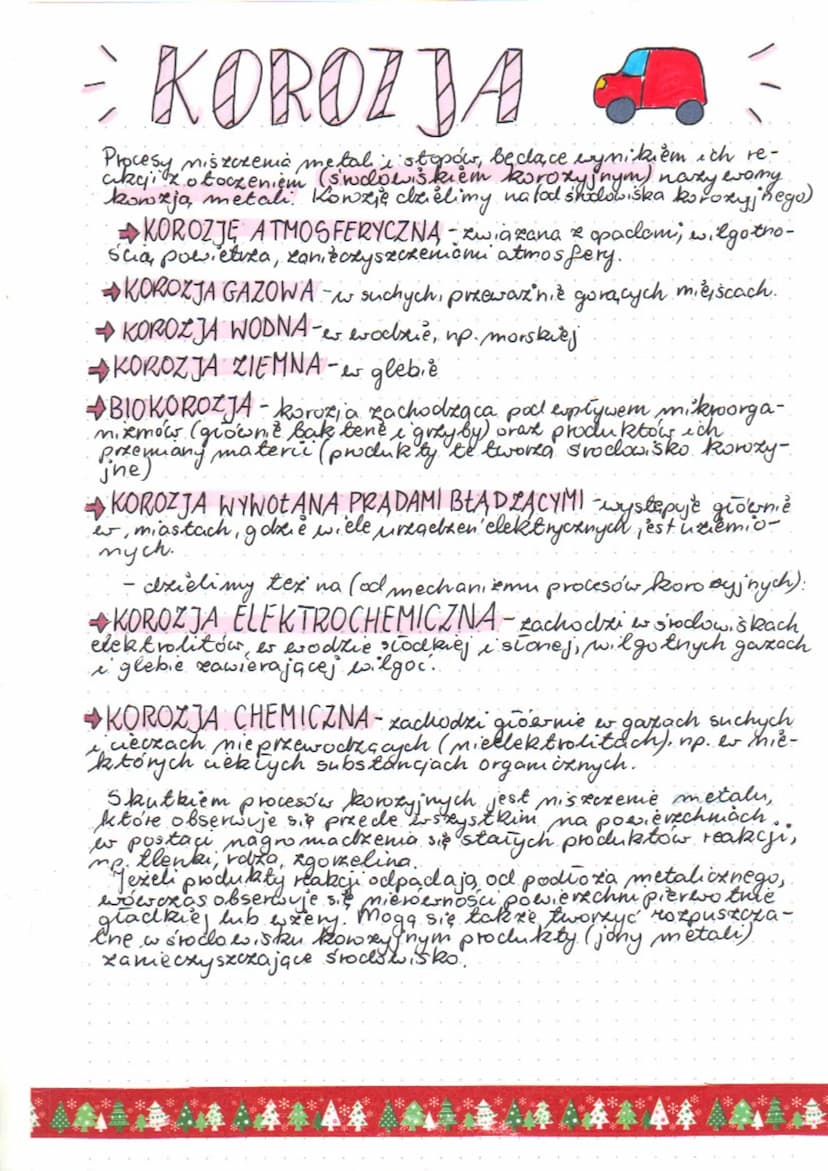 KOROZJA
Procesy niszczenia metali i stopów, będące wynikiem ich re-
akcji z otoczeniem (środowiskiem korozyjnym) nazywamy
korozją metali. Korozję dzielimy na (od środowiska korozyjnego)
KOROZJĘ ATMOSFERYCZNĄ - związana z opadami, wilgotno-
ścią powietrza, zanieczyszczeniami atmosfery.
KOROZJA GAZOWA - w suchych, przeważnie gorących miejscach.
KOROZJA WODNA - w wodzie, np. morskiej
KOROZJA ZIEMNA - w glebie
BIOKOROZJA - korozja zachodząca pod wpływem mikroorga-
nizmów (głównie bakterie i grzyby) oraz produktów ich
przemiany materii (produkty te tworzą środowisko korozy-
jne)
KOROZJA WYWOŁANA PRĄDAMI BŁĄDZĄCYMI - występuje głównie
w miastach, gdzie wiele urządzeń elektrycznych jest uziemio-
nych.
- dzielimy też na (od mechanizmu procesów korozyjnych):
KOROZJA ELEKTROCHEMICZNA - zachodzi w środowiskach
elektrolitów, w wodzie słodkiej i słonej, wilgotnych gazach
i glebie zawierającej wilgoć.
KOROZJA CHEMICZNA - zachodzi głównie w gazach suchych
i cieczach nieprzewodzących (nieelektrolitach), np. w nie-
których ciekłych substancjach organicznych.
Skutkiem procesów korozyjnych jest niszczenie metalu,
które obserwuje się przede wszystkim na powierzchniach
w postaci nagromadzenia się stałych produktów reakcji,
np. tlenki, rdza, zgorzelina.
Jeżeli produkty reakcji odpadają od podłoża metalicznego,
wówczas obserwuje się nierówności powierzchni pierwotnie
gładkiej lub wżery. Mogą się także tworzyć rozpuszcza-
lne w środowisku korozyjnym produkty (jony metali)
zanieczyszczające środowisko.